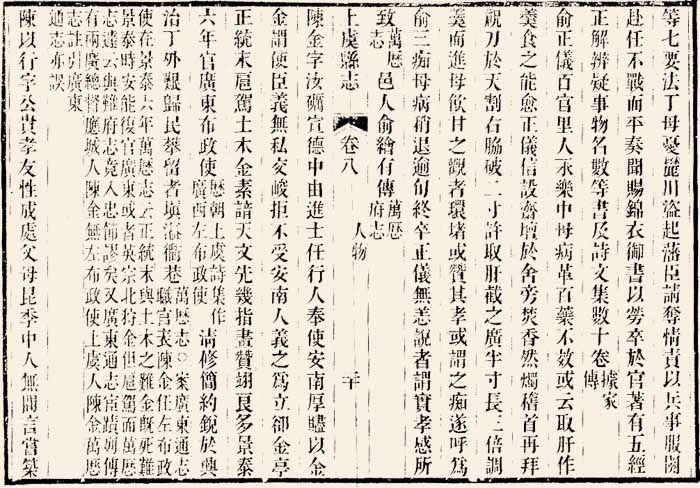 等七要法丁母憂巖川盜起藩臣請奪情責以兵事服闋
赴任不戰而平奏聞賜錦衣御書以勞卒於官著有五經
正解辨疑事物名數等書及詩文集數十卷據家傳
俞正儀百官里人永樂中母病革百藥不效或云取肝作
羹食之能愈正儀信設齋壇於舍旁焚香然燭稽首再拜
祝刀於天割右脇破二寸許取肝截之廣半寸長三倍調
羹而進母飲甘之觀者環堵或贊其孝或謂之痴遂呼為
俞三痴母病稍退逾旬終卒正儀無恙說者謂實孝感所
致萬厯志邑人俞繪有傳萬厯府志
上虞縣志 卷八 人物 二十
陳金字汝礪宣德中由進士任行人奉使安南厚贐以金
金謂使臣義無私交峻拒不受安南人義之為立卻金亭
正統末扈駕土木金素諳天文先幾指畫贊翊良多景泰
六年官廣東布政使厯朝上虞詩集作廣西左布政使清修簡約銳於興
治丁外艱歸民攀留者塡溢衢巷萬厯志○案廣東通志職官表陳金任左布政
使在景泰六年萬厯志云正統末與土木之難金旣死難
景泰時安能復官廣東或者英宗北狩金但扈駕而萬厯
志遂云與難府志竟入忠節謬矣又廣東通志宦蹟列傳
有兩廣總督應城人陳金無左布政使上虞人陳金萬厯
志註引廣東
通志亦誤
陳以行字公貴孝友性成處父母昆季中人無閒言嘗築